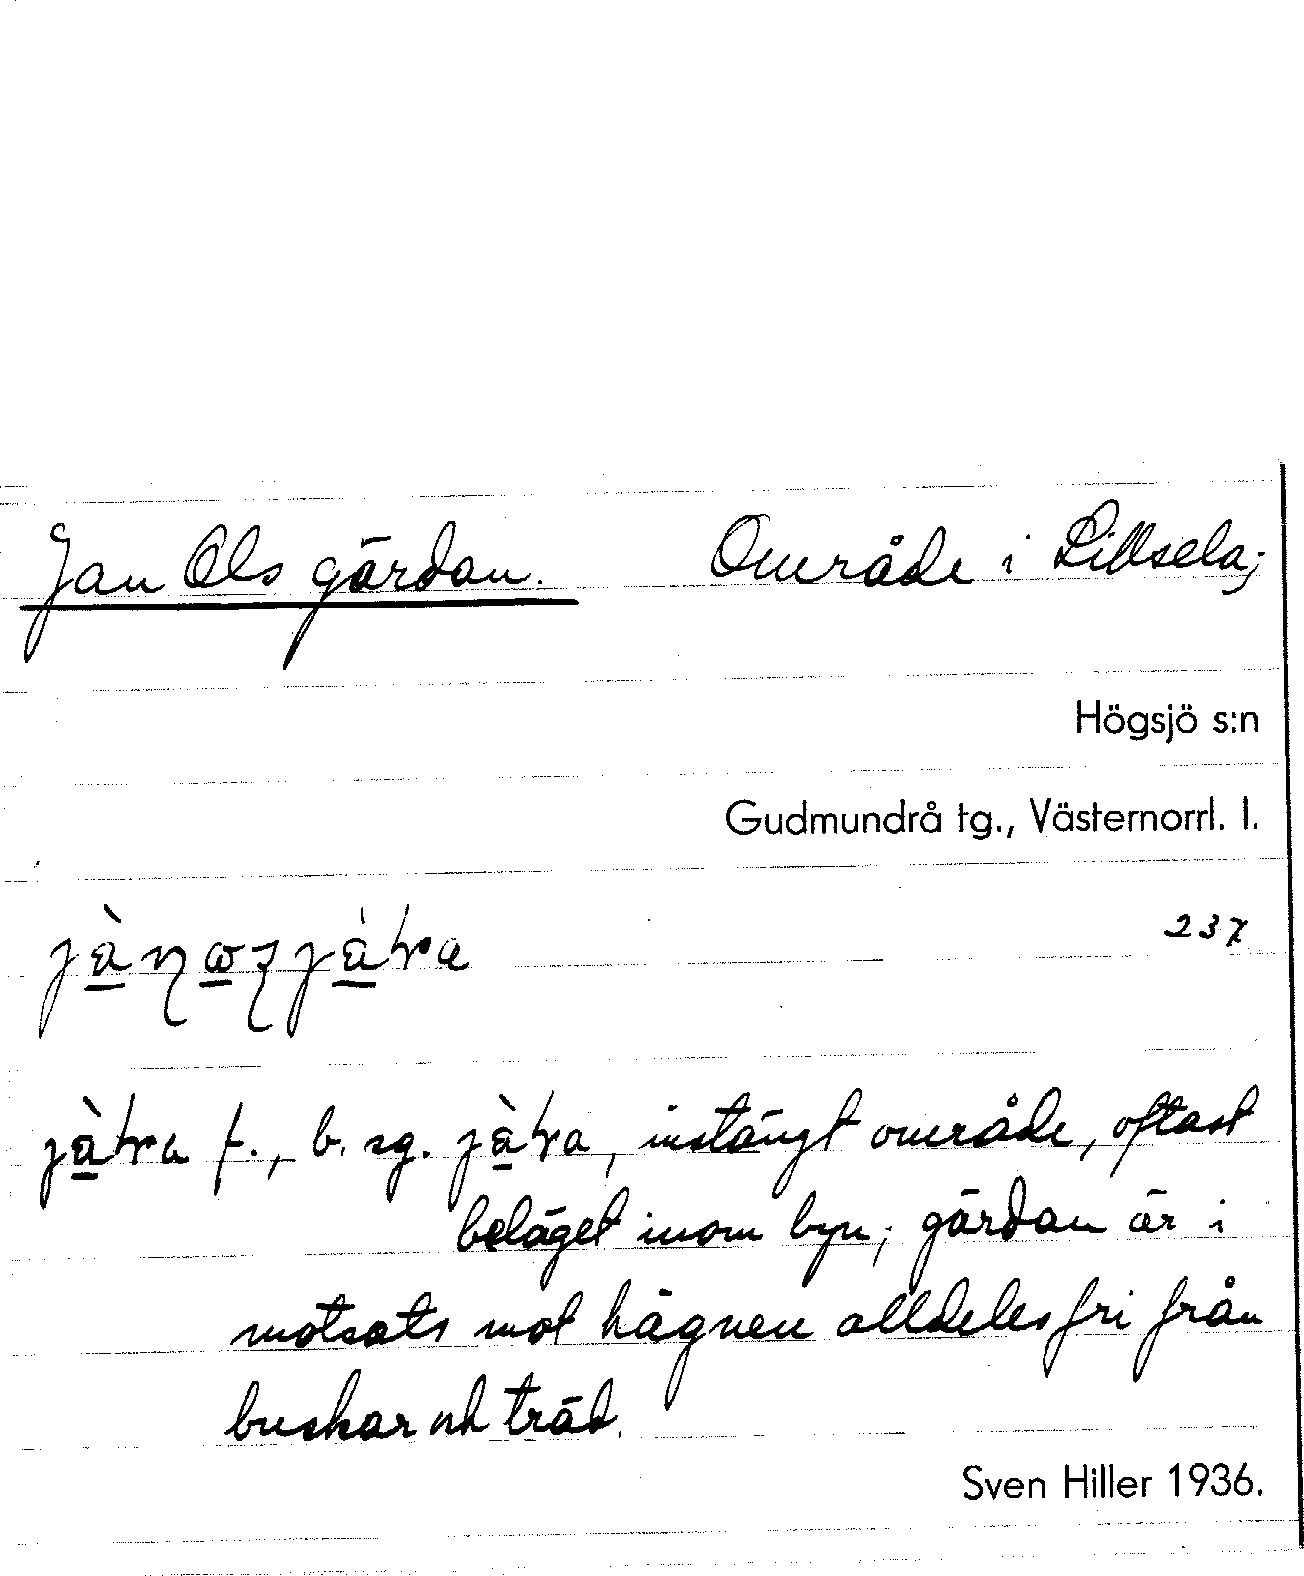 Jan Ols gärdan. Område i Lillsela;
Högsjö s:n
Gudmundrå tg., Västernorrl. l.
237
f., b. sg. , instängt område, oftast
beläget inom byn; gärdan är i
motsats mot hägnen alldeles fri från
buskar och träd.
Sven Hiller 1936.